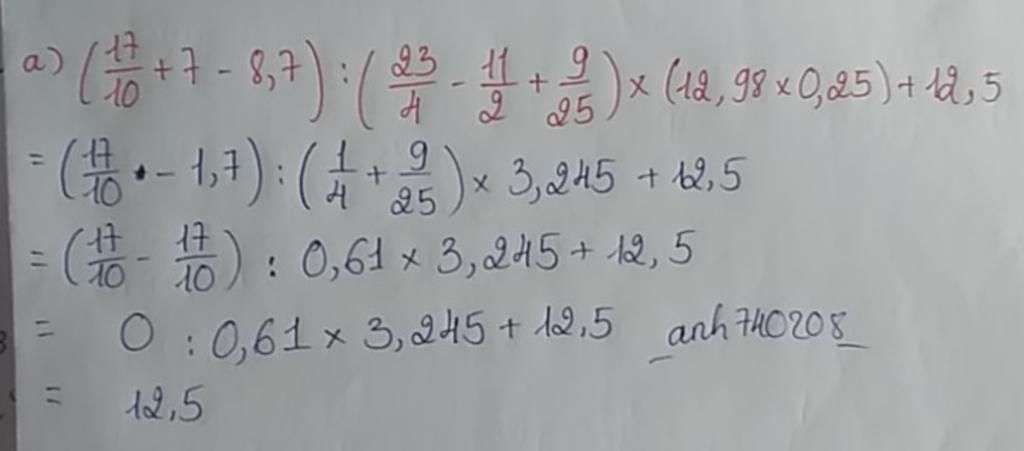 a) (17/10 + 7 - 8,7) : (23/4 - 11/2 + 9/25) × (12,98 × 0,25) + 12,5
= (17/10 - 1,7) : (1/4 + 9/25) × 3,245 + 12,5
= (17/10 - 17/10) : 0,61 × 3,245 + 12,5
= 0 : 0,61 × 3,245 + 12,5 _anh740208_
= 12,5